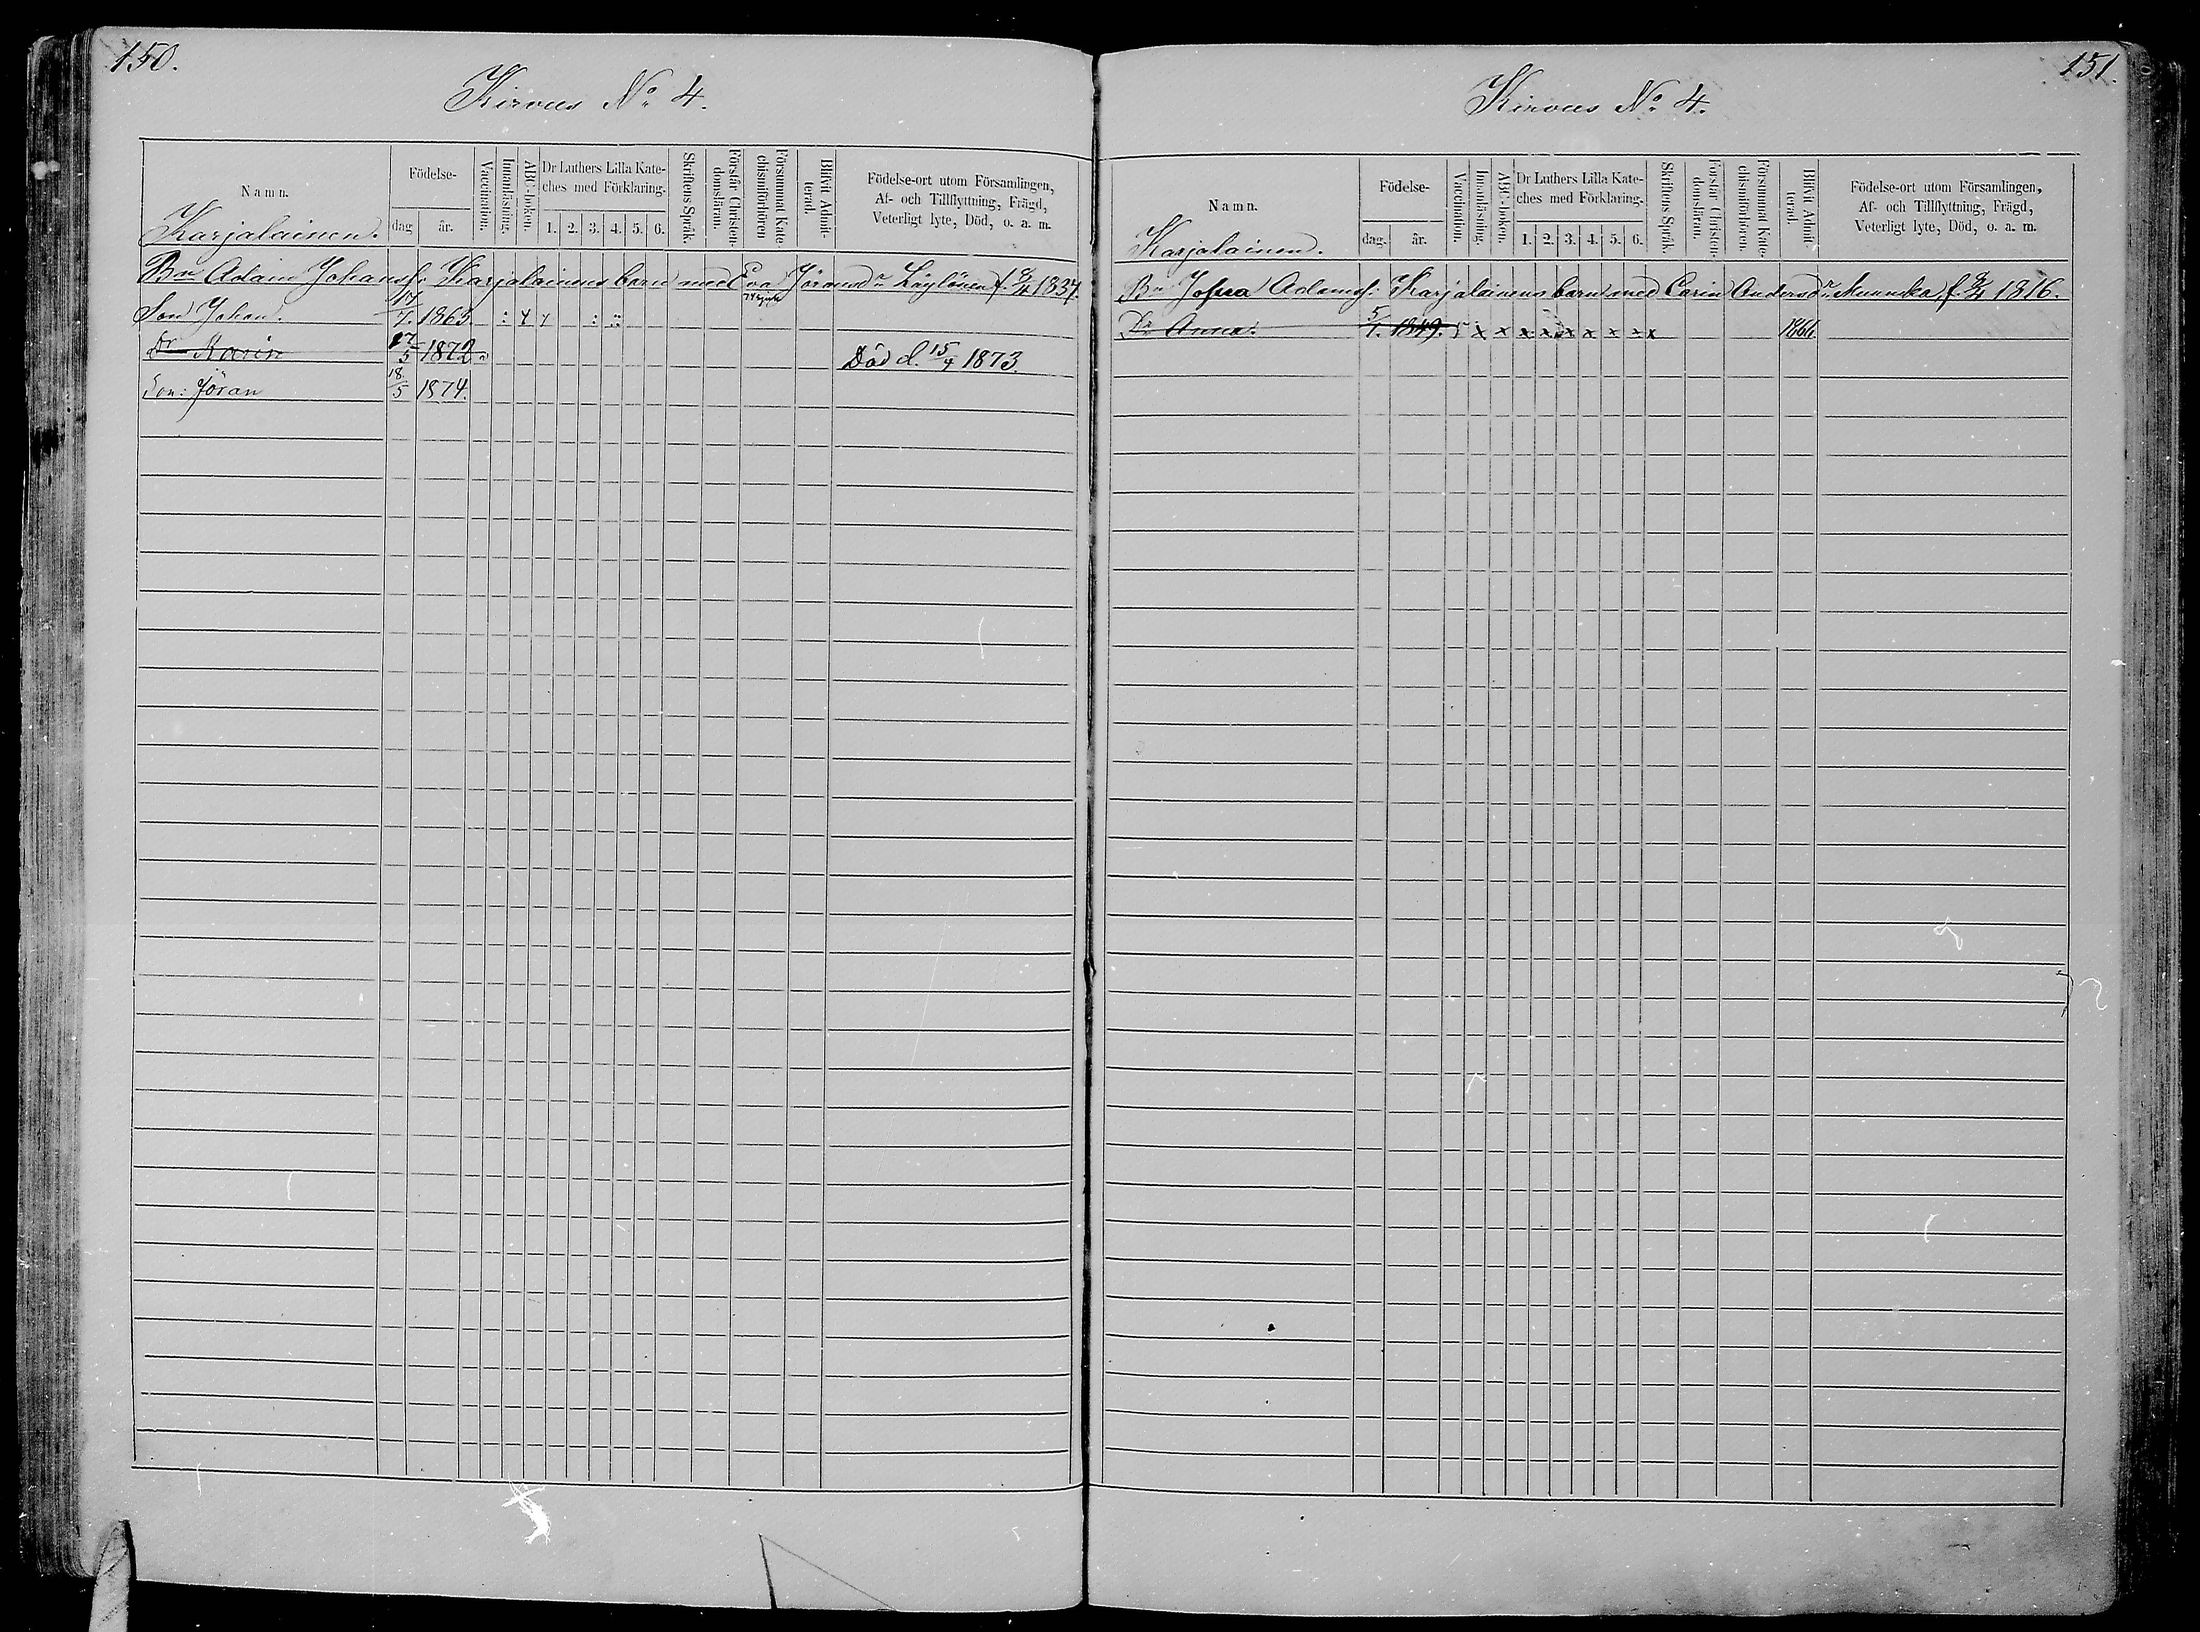 150.
Kirvus No 4.
Namn.
Födelse-
dag
år.
Vaccination.
Innanläsning.
ABC-boken.
Dr Luthers Lilla Kate-
ches med Förklaring.
1. 2. 3. 4. 5. 6.
Skriftens Språk.
Förstår Christen-
domsläran.
Försummat Kate-
chismiförhören
Blifvit Admit-
terad.
Födelse-ort utom Församlingen,
Af- och Tillflyttning, Frägd,
Veterligt lyte, Död, o. a. m.
Karjalainen.
Bn Adam Johansf. Karjalainens barn med Eva Jöransdr f. 9/4 1837.
Son Johan. 17/7. 1865.
Dr Karin 27/5 1872. Död d. 15/4 1873.
Son: Jöran 18./5 1874.
151.
Kirvus No 4.
Namn.
Födelse-
dag.
år.
Vaccination.
Innanläsning.
ABC-boken.
Dr Luthers Lilla Kate-
ches med Förklaring.
1. 2. 3. 4. 5. 6.
Skriftens Språk.
Förstår Christen-
domsläran.
Försummat Kate-
chismiförhören.
Blifvit Admit-
terad.
Födelse-ort utom Församlingen,
Af- och Tillflyttning, Frägd,
Veterligt lyte, Död, o. a. m.
Karjalainen.
Bn Josua Adamsf. Karjalainens barn med Carin Andersdr f. 9/4 1816.
Dr Anna. 5/1. 1849. x x x x x x x x x 1866